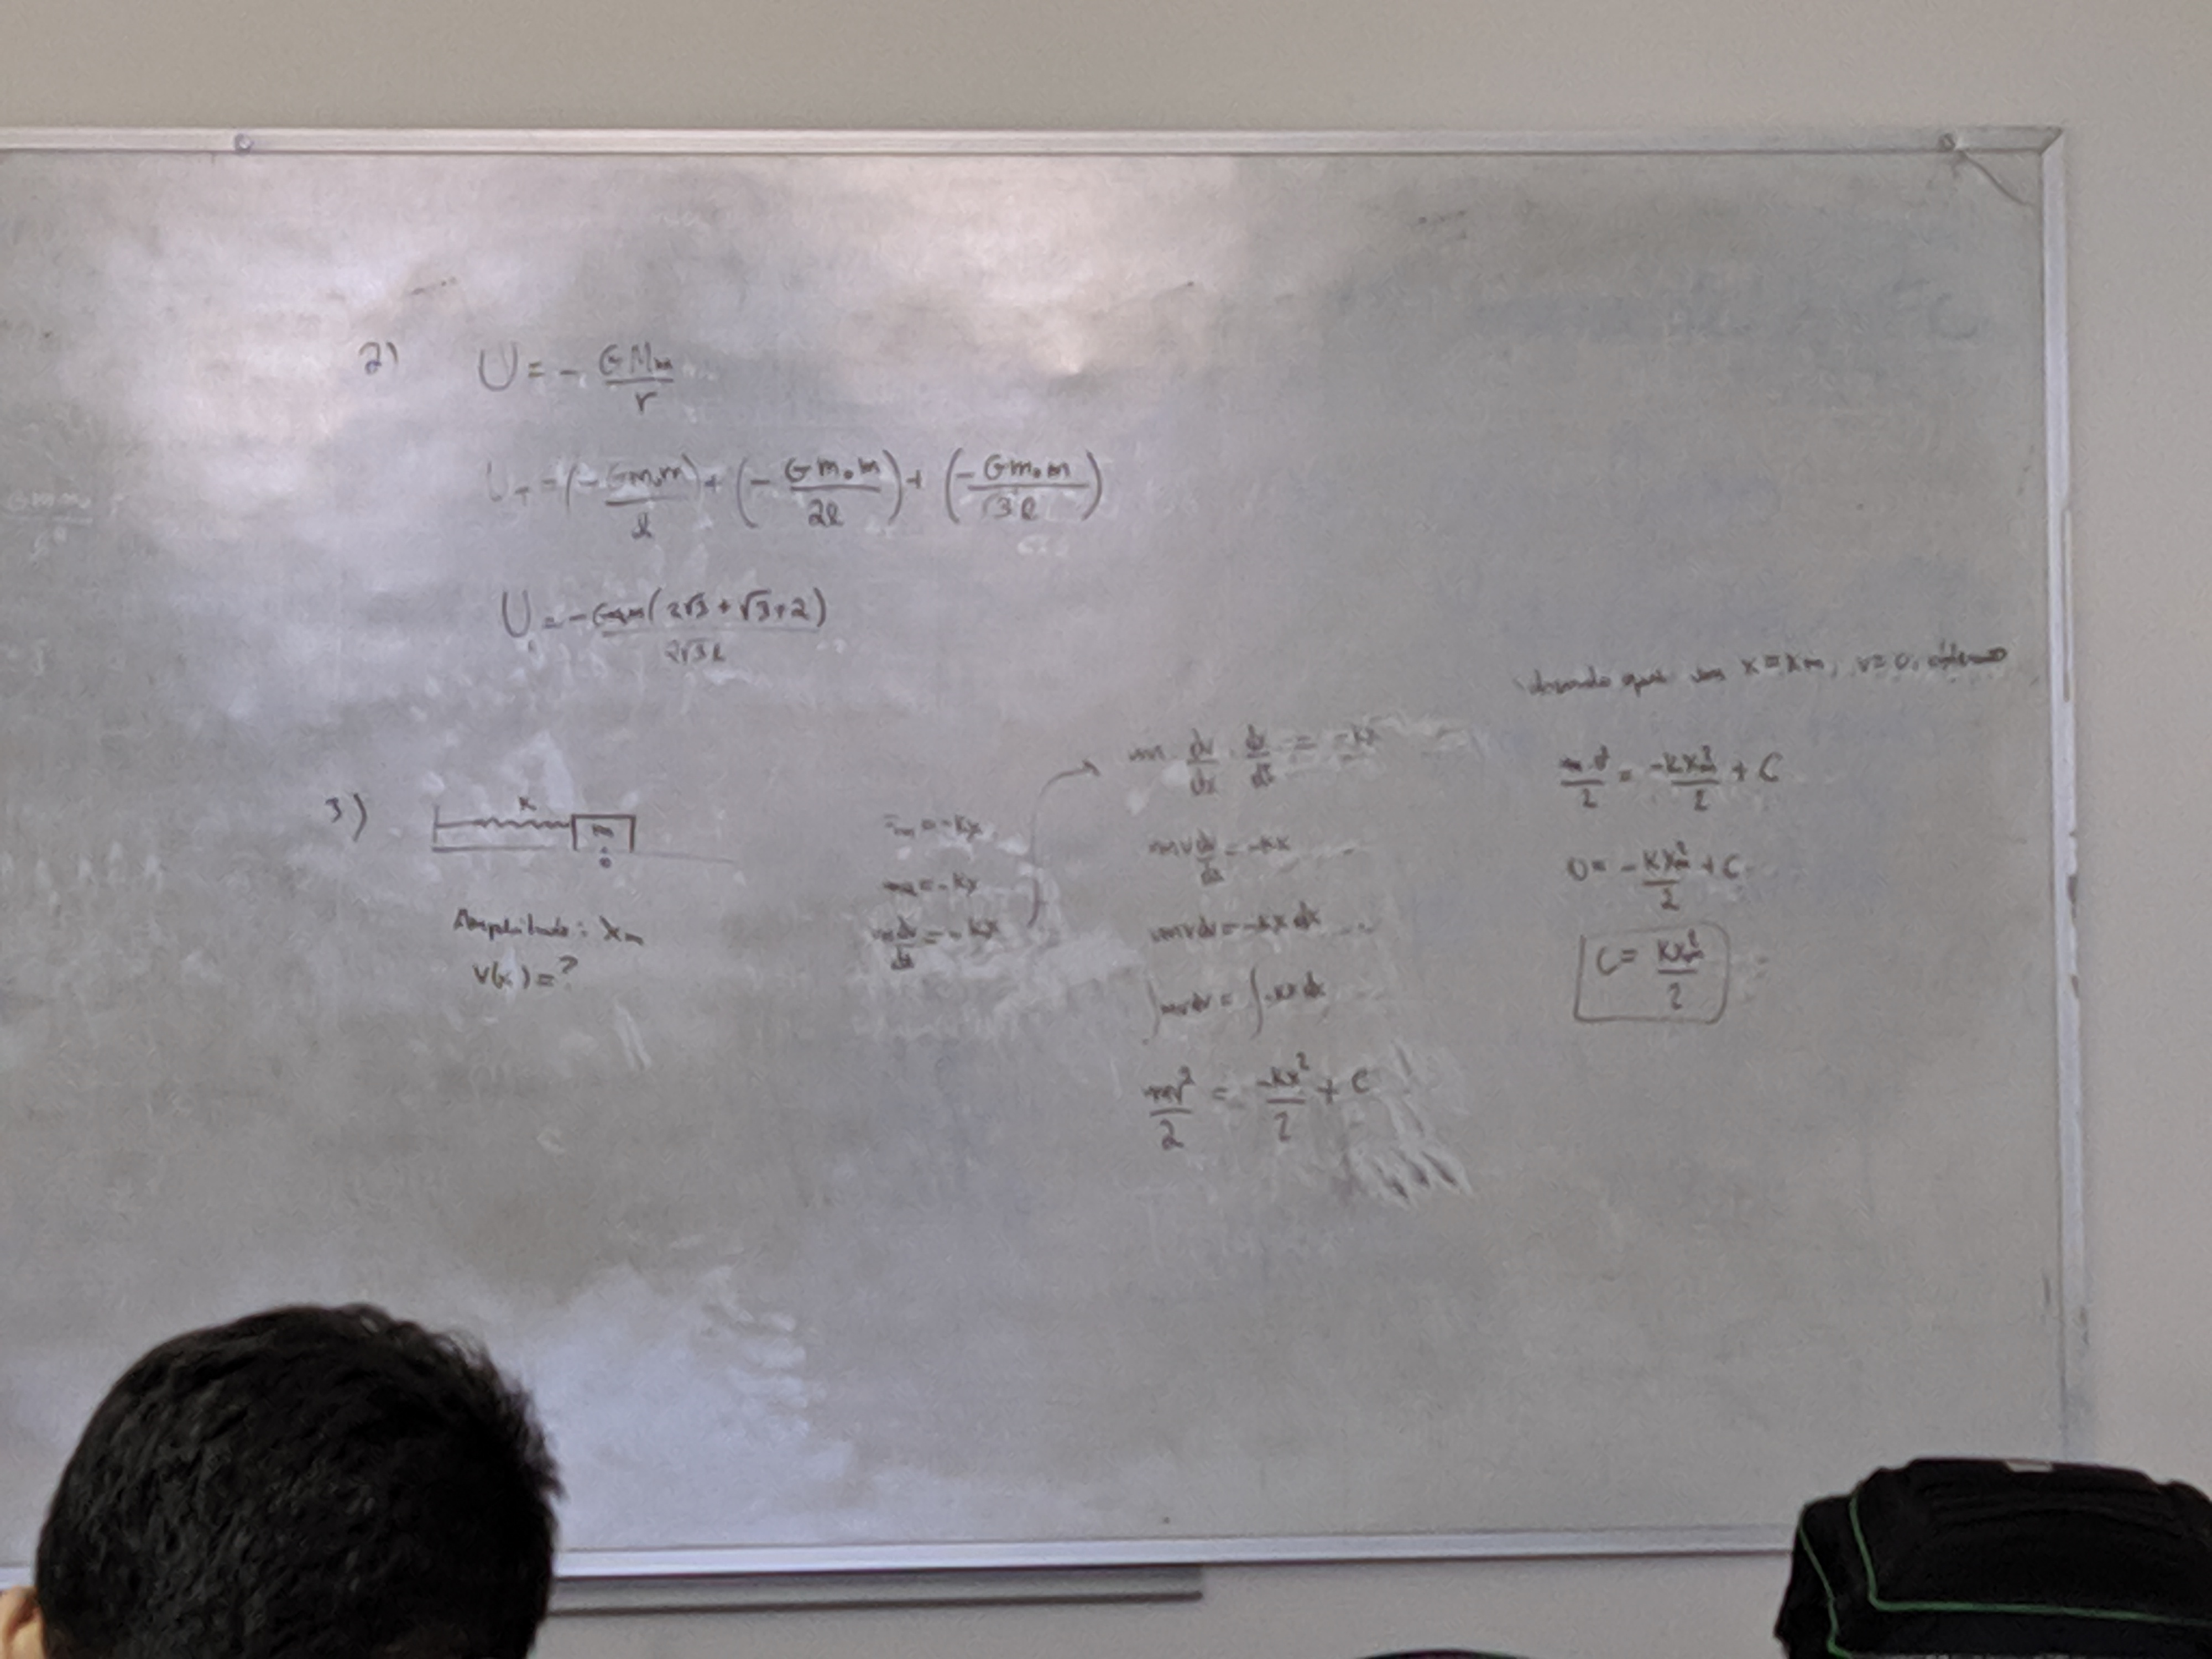 2) U = - GMm/r
U_T = (- Gm₀m/l) + (- Gm₀m/2l) + (- Gm₀m/√3l)
U = -Gm₀m(2√3 + √3 + 2)/2√3l
3) K
m
0
Amplitude: Xm
V(x) = ?
Fm = -Kx
ma = -Kx
m dv/dt = -Kx
m · dv/dx · dx/dt = -Kx
mv dv/dx = -Kx
mv dv = -Kx dx
∫mv dv = ∫-Kx dx
mv²/2 = -Kx²/2 + C
que em x = Xm, v = 0,
m·0²/2 = -KXm²/2 + C
0 = -KXm²/2 + C
C = KXm²/2